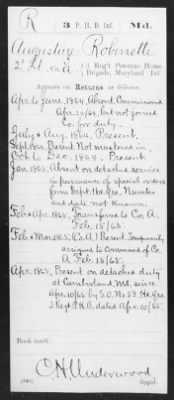 R 3 P. H. B. Inf. Md.
Augustave Robinette
2" Lt, Co. A, 3 Reg't Potomac Home Brigade, Maryland Inf.
Appears on Returns as follows:
Apr. to June, 1864, Absent Commissioned
Apr. 22/64, but not joined
Co. for duty.
July & Aug. 1864, Present.
Sept. 1864, Present. Not mustered in.
Oct. to Dec. 1864, Present.
Jan. 1865, Absent on detached service
in pursuance of special orders
from Dept. Hd. Qrs. Number
and date not known.
Feb & Apr. 1865, Transf'd to Co. A.
Feb. 15/65.
Feb & Mar. 1865, (Co. A) Present. Temporarily
assigned to command of Co.
A Feb. 15/65.
Apr. 1865, Present on detached duty
at Cumberland, Md. since
Apr. 10/65 by S.O. No 53. Hd. Qrs.
3 Reg't P.H.B. dated Apr. 10/65.
Book mark:
C H Underwood
(546) Copyist.